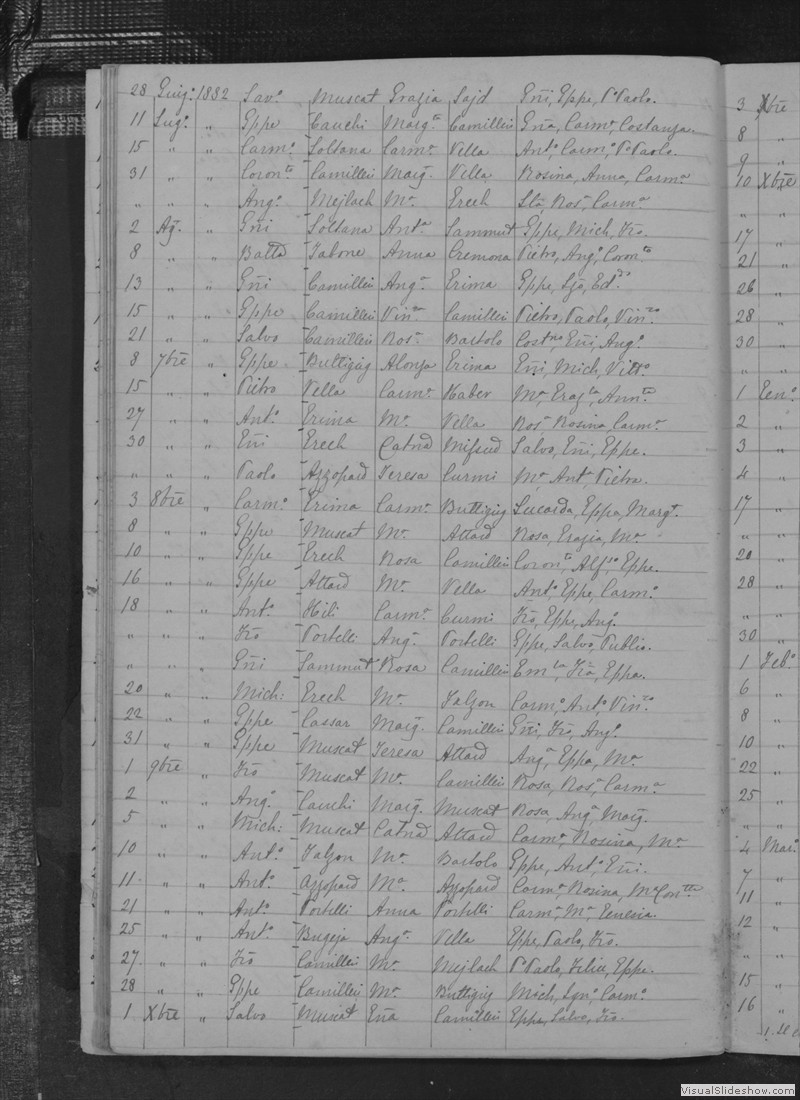 28 Giug: 1882 Sav.o Muscat Grazia Sajd Gñi, Eppe, P. Paolo.
11 Lug.o " Eppe Cauchi Marg.ta Camilleri Gña, Carm.a Costanza.
15 " " Carm.o Soltana Carm.a Vella Ant.o, Carm.o P. Paolo.
31 " " Coron.to Camilleri Marg. Vella Rosina, Anna, Carm.a
" " " Ang.o Mejlach M.a Grech Ros.a Carm.a
2 Ag. " Gñi Soltana Ant.a Sammut Eppe, Mich, Frõ
8 " " Batta Tabone Anna Cremona Pietro, Ang.o Coron.to
13 " " Gñi Camilleri Ang.a Grima Eppe,
15 " " Eppe Camilleri Vin.za Camilleri Pietro, Paolo, Vin.zo
21 " " Salvo Camilleri Ros.a Bartolo Gñi, Ang.o
8 7bre " Eppe Buttigig Alonza Grima Gñi, Mich, Vitt.o
15 " " Pietro Vella Carm.a Haber M.a, Graz.la, Ann.ta
27 " " Ant.o Grima M.a Vella Ros.a Rosina, Carm.a
30 " " Gñi Grech Catna Mifsud Salvo, Gñi, Eppe.
" " " Paolo Azzopard Teresa Curmi M.a Ant.o Pietro.
3 8bre " Carm.o Grima Carm.a Buttigig Lucarda, Eppa, Marg.a
8 " " Eppe Muscat M.a Attard Rosa, Grazia, M.a
10 " " Eppe Grech Rosa Camilleri Coron.to, Alf.so, Eppe.
16 " " Eppe Attard M.a Vella Ant.o Eppe, Carm.o
18 " " Ant.o Hili Carm.a Curmi Frõ, Eppe, Ang.o
" " " Frõ Portelli Ang.a Portelli Eppe, Salvo, Publio.
" " " Gñi Sammut Rosa Camilleri Em.la, Frã, Eppa.
20 " " Mich: Grech M.a Falzon Carm.o Ant.o Vin.zo
22 " " Eppe Cassar Marg. Camilleri Gñi, Frõ, Ang.o
31 " " Eppe Muscat Teresa Attard Ang.a Eppa, M.a
1 9bre " Frõ Muscat M.a Camilleri Rosa, Ros.a Carm.a
2 " " Ang.o Cauchi Marg. Muscat Rosa, Ang.a Marg.
5 " " Mich: Muscat Catna Attard Carm.a, Rosina, M.a
10 " " Ant.o Falzon M.a Bartolo Eppe, Ant.o, Gñi.
11 " " Ant.o Azzopard M.a Azzopard Carm.a Rosina, M.a Con.tta
21 " " Ant.o Portelli Anna Portelli Carm.a M.a
25 " " Ant.o Bugeja Ang.a Vella Eppe, Paolo, Frõ.
27 " " Frõ Camilleri M.a Mejlach P. Paolo, Felice, Eppe.
28 " " Eppe Camilleri M.a Buttigig Mich, Ign.o, Carm.o
1 Xbre " Salvo Muscat Gña Camilleri Eppe, Salvo, Frõ.
3 Xbre
8 "
9 "
10 Xbre
" "
17 "
21 "
26 "
28 "
30 "
" "
1 Gen.o
2 "
3 "
4 "
17 "
" "
20 "
28 "
" "
30 "
1 Feb.o
6 "
8 "
10 "
22 "
25 "
" "
4 Mar.o
7 "
11 "
12 "
" "
15 "
16 "
VisualSlideshow.com